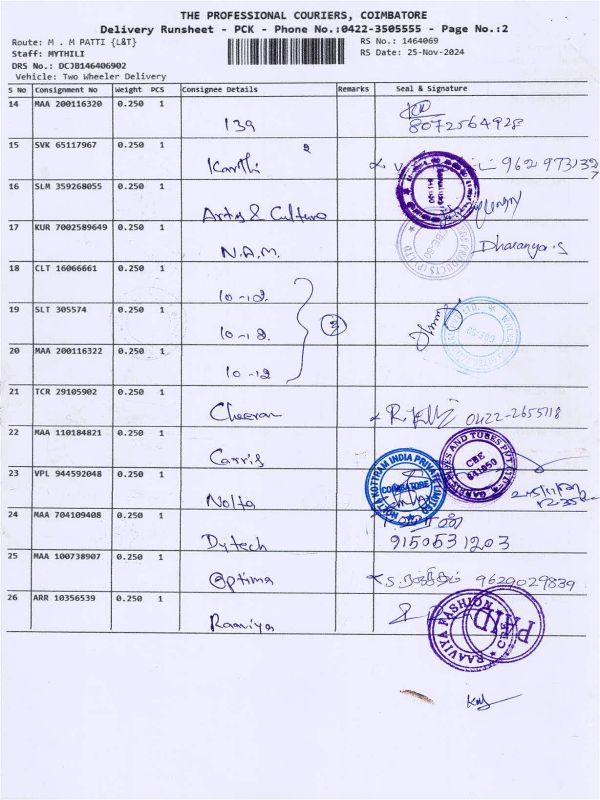 THE PROFESSIONAL COURIERS, COIMBATORE
Delivery Runsheet - PCK - Phone No.:0422-3505555 - Page No.:2
Route: M . M PATTI {L&T}
RS No.: 1464069
Staff: MYTHILI
RS Date: 25-Nov-2024
DRS No.: DCJB146406902
Vehicle: Two Wheeler Delivery
S No Consignment No Weight PCS Consignee Details Remarks Seal & Signature
14 MAA 200116320 0.250 1 139
8072564928
15 SVK 65117967 0.250 1 Karthi 2
16 SLM 359268055 0.250 1 Arts & Culture
17 KUR 7002589649 0.250 1 N.A.M. Dharanya.S
18 CLT 16066661 0.250 1 10-12
19 SLT 305574 0.250 1 10-12 3
20 MAA 200116322 0.250 1 10-12
21 TCR 29105902 0.250 1 Cheeran 0422-2655118
22 MAA 110184821 0.250 1 Garris
CBE
641050
23 VPL 944592048 0.250 1 Nolta
NOLTA KOTTRAM INDIA PRIVATE LIMITED
COIMBATORE
24 MAA 704109408 0.250 1 Dytech 9150531203
25 MAA 100738907 0.250 1 Optima 9629029839
26 ARR 10356539 0.250 1 Raaviya
RAAVIYA FASHION
CBE
PAID